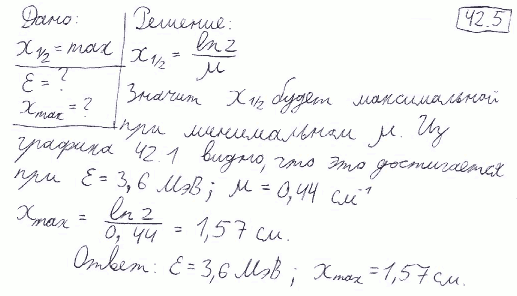 Дано:
x1/2 = max
ε = ?
xmax = ?
Решение:
42.5
x1/2 = ln 2 / μ
Значит x1/2 будет максимальной
при минимальном μ. Из
графика 42.1 видно, что это достигается
при ε = 3,6 МэВ; μ = 0,44 см⁻¹
xmax = ln 2 / 0,44 = 1,57 см.
Ответ: ε = 3,6 МэВ; xmax = 1,57 см.